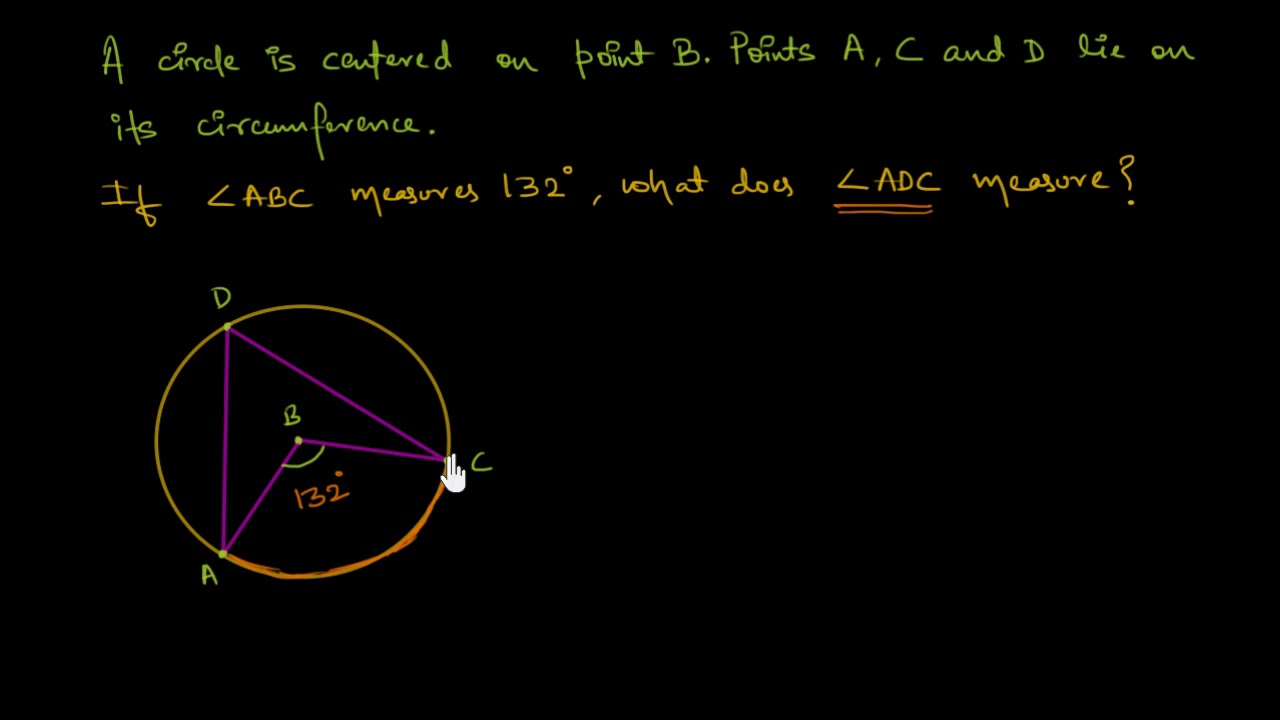 A circle is centered on point B. Points A, C and D lie on
its circumference.
If ∠ABC measures 132°, what does ∠ADC measure?
D
B
C
132°
A